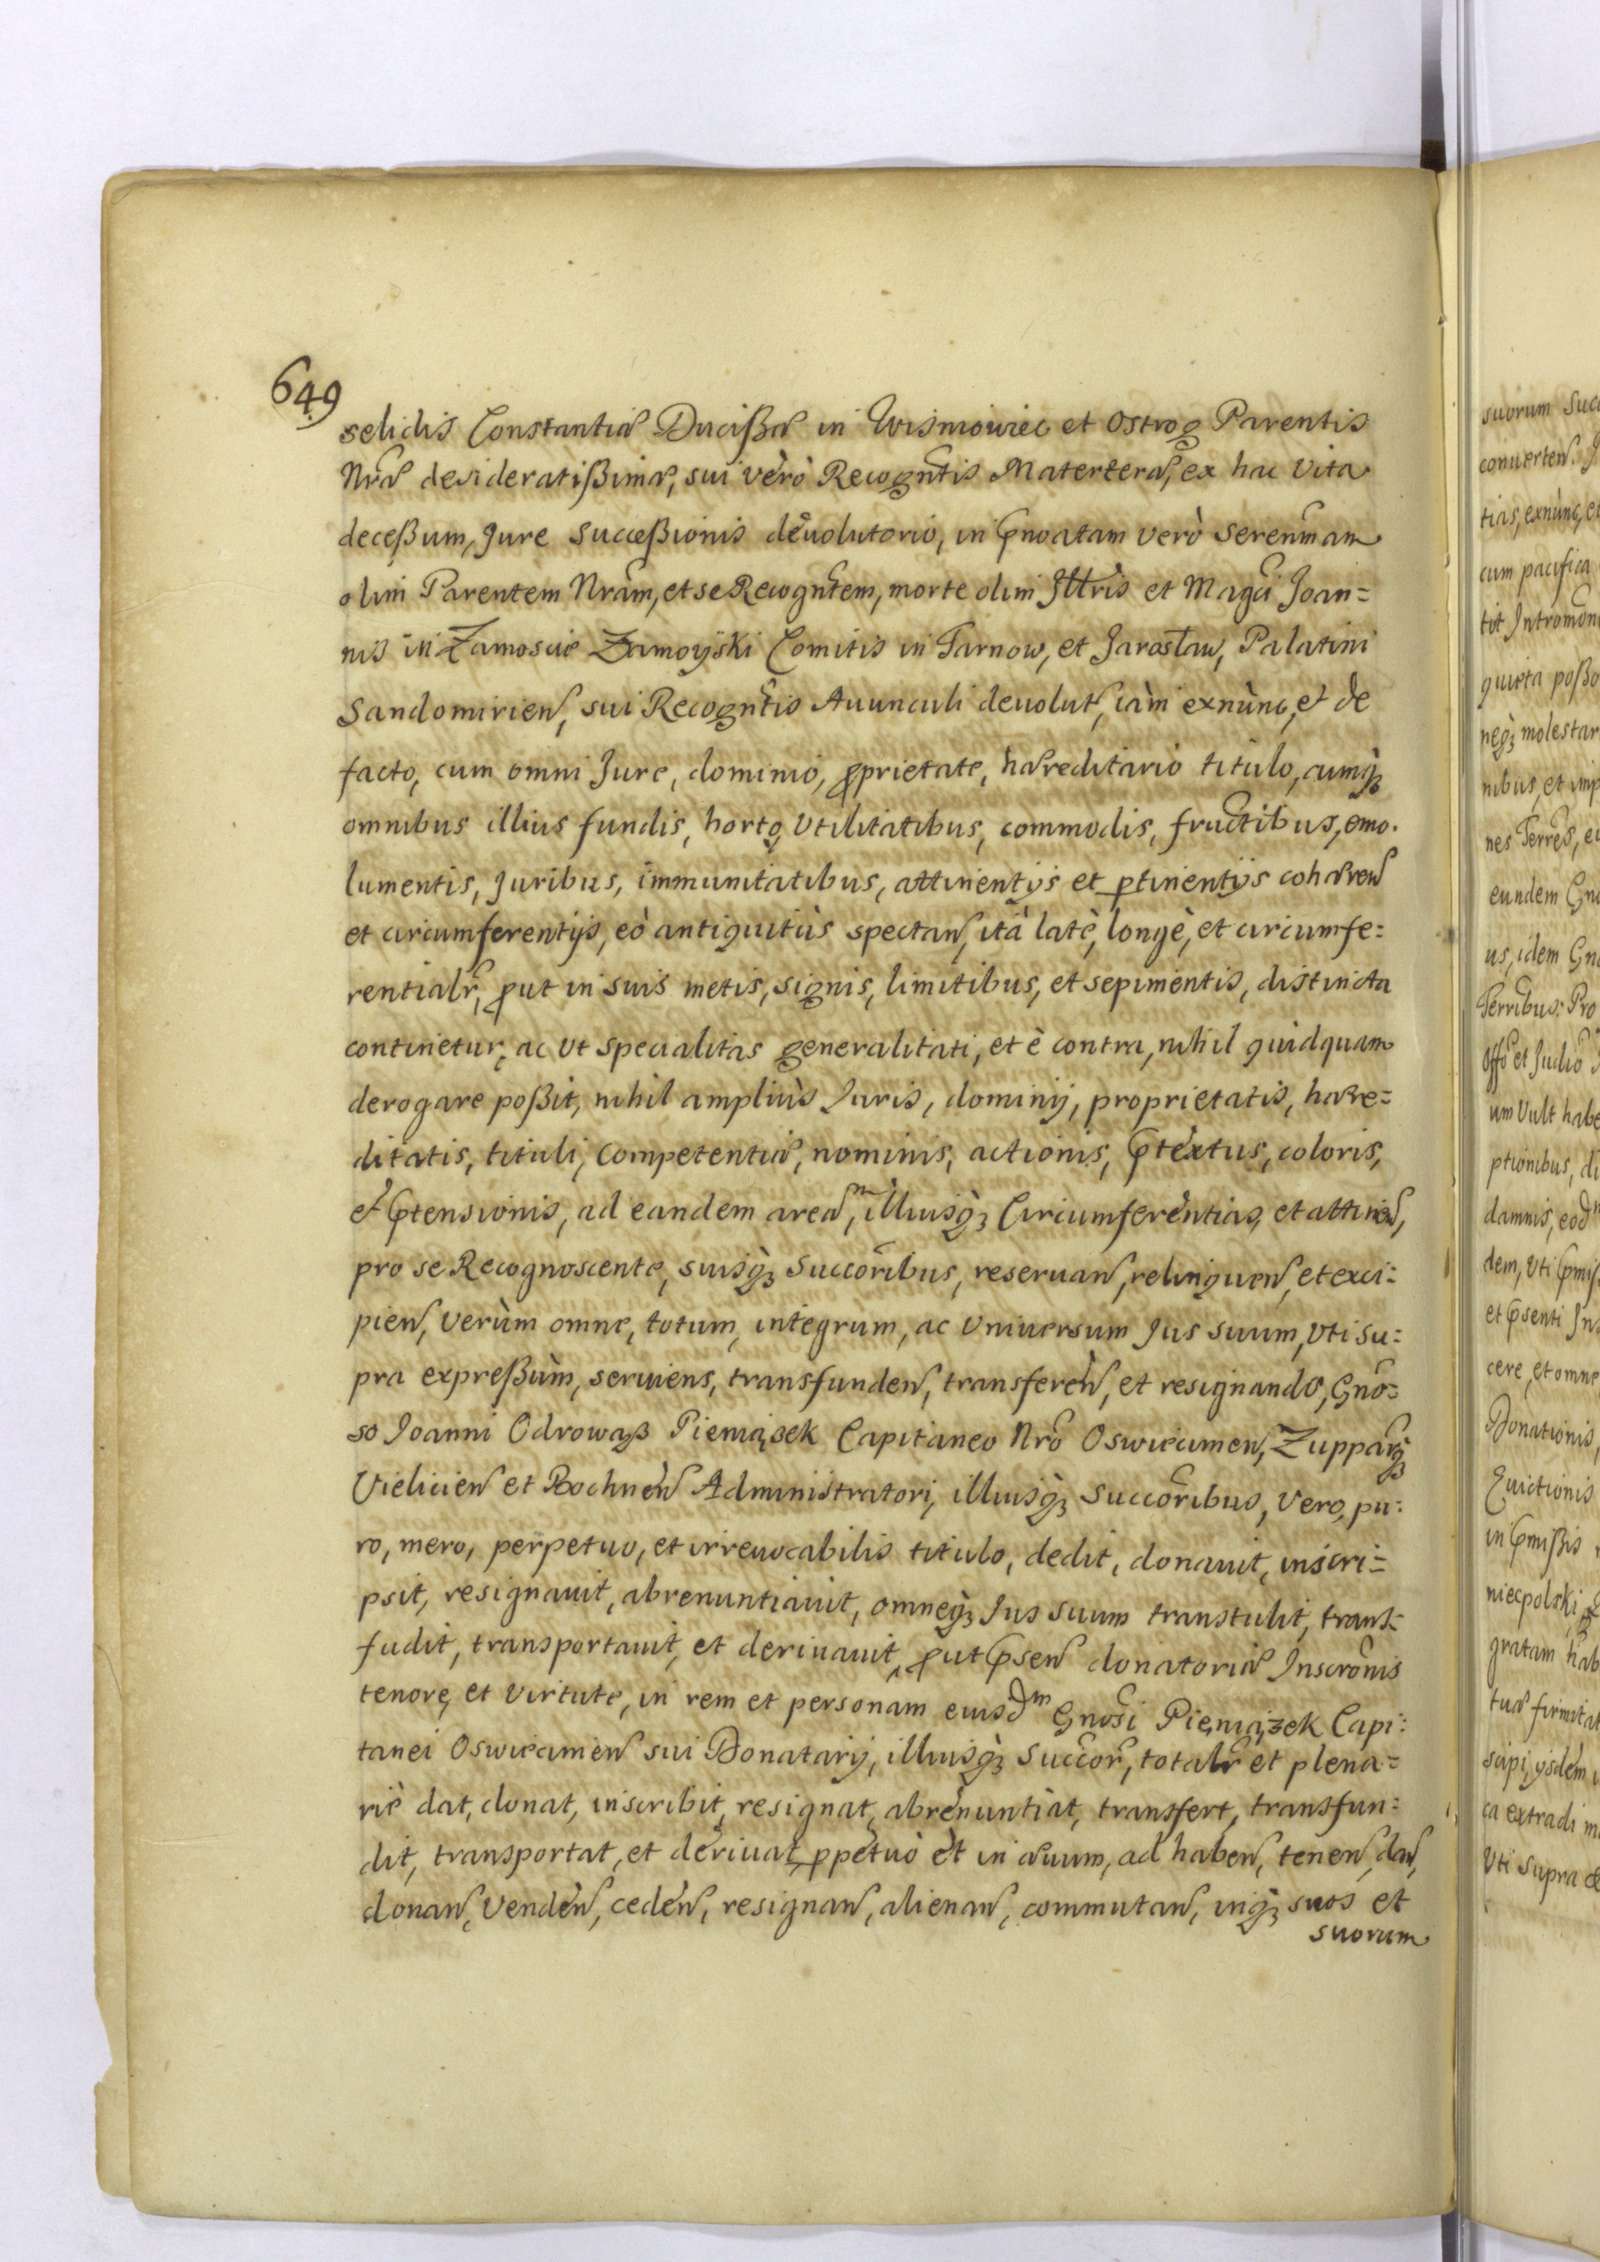 649
selidis Constantiæ Ducißæ in Wisniowiec et Ostrog Parentis
Nræ desideratißimæ, sui verò Recogntis Materteræ, ex hac vita
deceßum, Jure succeßionis devolutorio, in pnoatam verò serenmam
olim Parentem Nram, et se Recogntem, morte olim Jllris et Magci Joan=
nis in Zamoscie Zamoyski Comitis in Tarnow, et Jarosław, Palatini
Sandomirien, sui Recogntis Avunculi devolut, iam exnunc, et de
facto, cum omni Jure, dominio, proprietate, hæreditario titulo, cumq;
omnibus illius fundis, horto, Vtilitatibus, commodis, fructibus, emo-
lumentis, Juribus, immunitatibus, attinentijs et ptinentijs cohæren
et circumferentijs, eò antiquitùs spectan, ità latè, longè, et circumfe=
rentialr, prout in suis metis, signis, limitibus, et sepimentis, distincta
continetur, ac Vt specialitas generalitati, et è contra, nihil quidquam
derogare poßit, nihil ampliùs Juris, dominij, proprietatis, hære=
ditatis, tituli, Competentiæ, nominis, actionis, ptextus, coloris,
et ptensionis, ad eandem aream, illiusq; Circumferentias, et attinen,
pro se Recognoscente, suisq; Succoribus, reservan, relinquen, et exci=
pien, Verùm omne, totum, integrum, ac Vniversum Jus suum, Vti su=
pra expreßum, serviens, transfunden, transferen, et resignando, Gno=
so Joanni Odrowąß Pieniązek Capitaneo Nro Oswiecimen, Zupparq;
Vielicien et Bochnen Administratori, illiusq; Succoribus, Vero, pu=
ro, mero, perpetuo, et irrevocabilis titulo, dedit, donavit, inscri=
psit, resignavit, abrenuntiavit, omneq; Jus suum transtulit, trans=
fudit, transportavit, et derivavit, prout psen donatoriæ Inscronis
tenore, et Virtute, in rem et personam eiusdm Gnosi Pieniązek Capi=
tanei Oswiecimen sui Donatarij, illiusq; Succor, totalr et plena=
riè dat, donat, inscribit, resignat, abrenuntiat, transfert, transfun=
dit, transportat, et derivat, ppetuò et in ævum, ad haben, tenen, dan,
donan, Venden, ceden, resignan, alienan, commutan, inq; suos et
suorum
suorum
converten.
tias, exnunc, et
cum pacifica
tit Intromon
quieta poßo
neq; molestar
nibus, et imp
nes Terres, e
eundem Gno
us, idem Gno
Terribus: Pro
Offo et Judio
um Vult habe
ptionibus, di
damnis, eodm
dem, Vti pmiß
et psenti In
cere, et omne
Donationis,
Evictionis
in pmißis
niecpolski,
gratam hab
tuæ firmitat
scipi, ysdem
ca extradi m
Vti supra